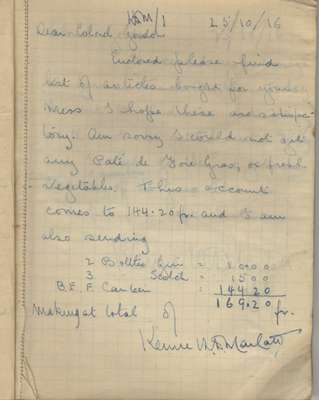 HQM/1 25/10/16
Dear Colonel Gordon
Enclosed please find
list of articles bought for your
Mess. I hope these are satisfac-
tory. Am sorry I could not get
any Paté de Foie Gras, or fresh
vegetables. This account
comes to 144.20 fr. and I am
also sending
2 Bottles Gin = 10.00
3 Scotch = 15.00
B.E.F. Canteen : 144.20
169.20
Making a total of fr.